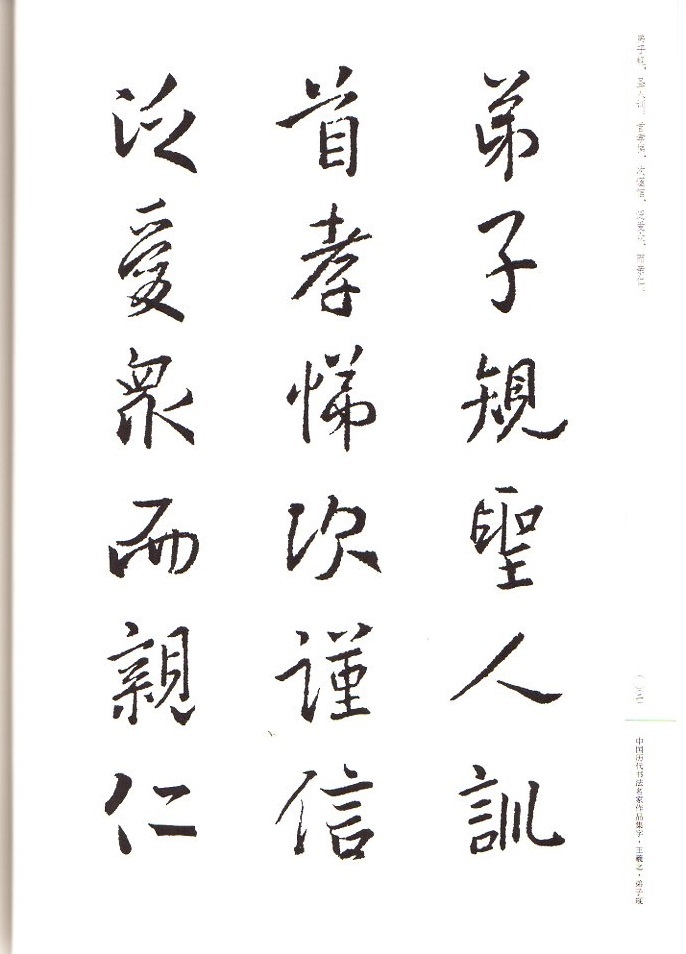 弟子規聖人訓
首孝悌次謹信
泛愛眾而親仁
弟子规，圣人训。首孝悌，次谨信。泛爱众，而亲仁。
中国历代书法名家作品集字·王羲之·弟子规